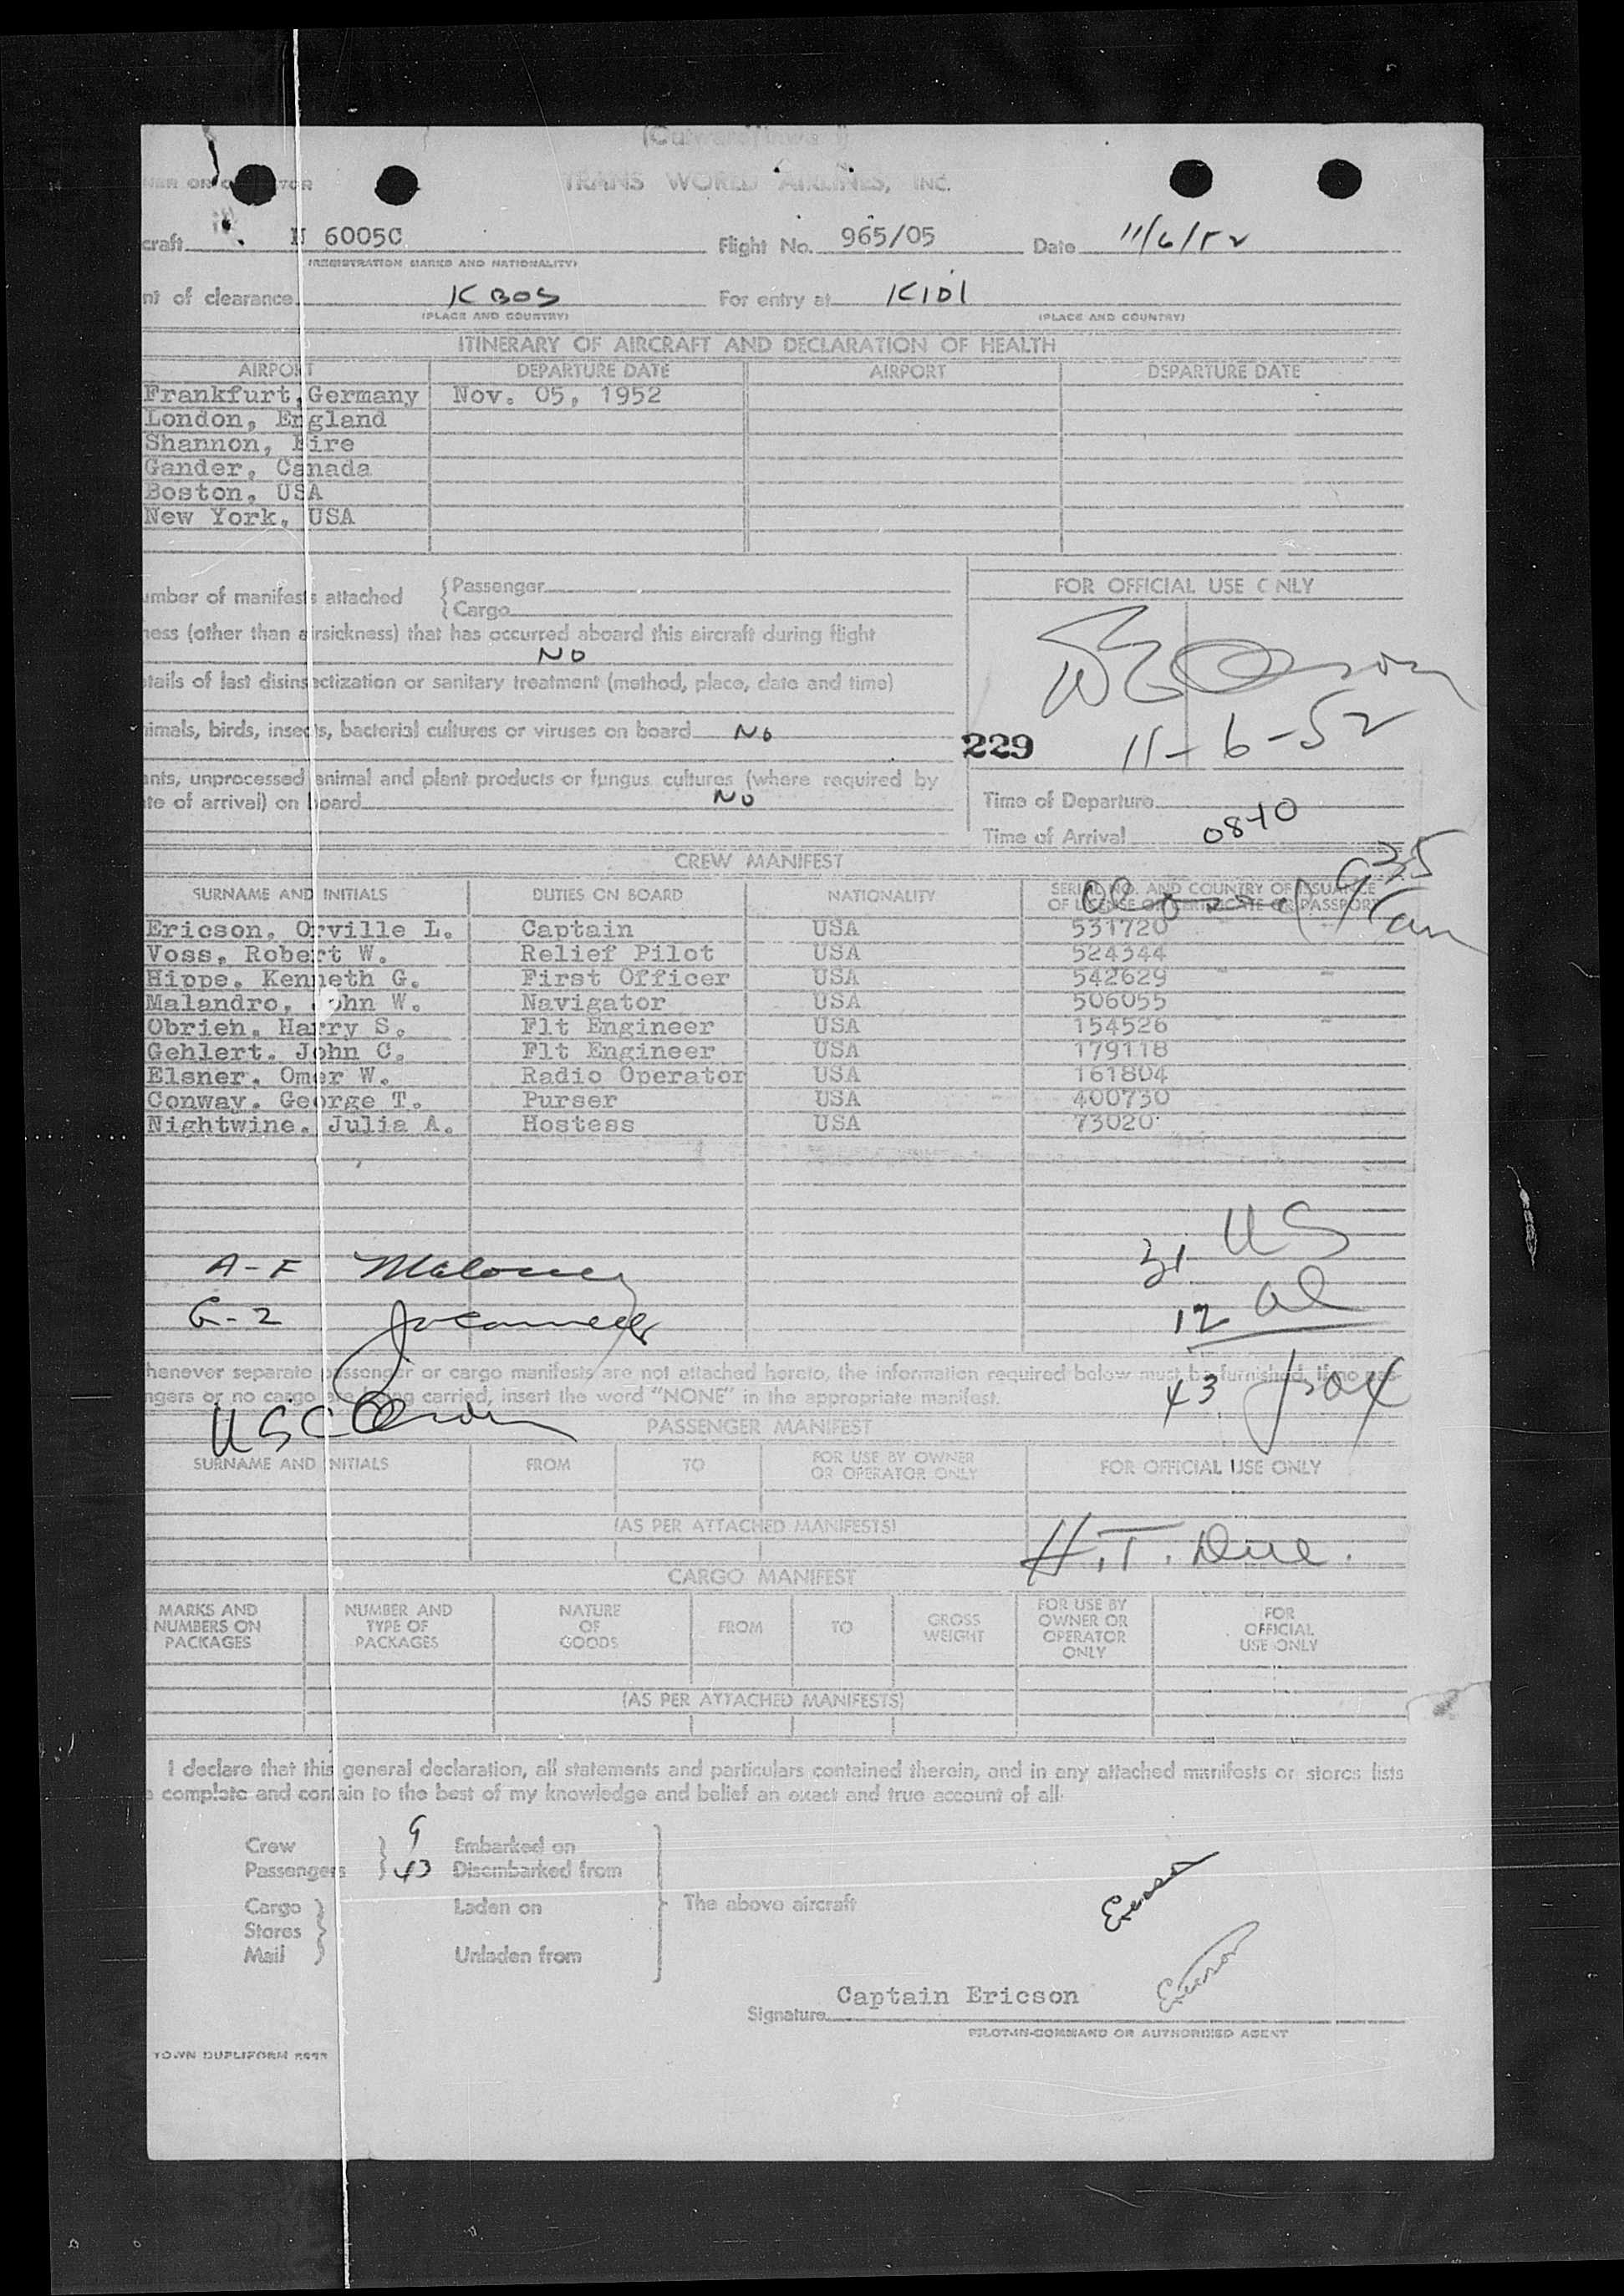 TRANS WORLD AIRLINES, INC.
craft N 6005C Flight No. 965/05 Date 11/6/52
(REGISTRATION MARKS AND NATIONALITY)
nt of clearance KBOS For entry at KIDL
(PLACE AND COUNTRY) (PLACE AND COUNTRY)
ITINERARY OF AIRCRAFT AND DECLARATION OF HEALTH
AIRPORT DEPARTURE DATE AIRPORT DEPARTURE DATE
Frankfurt, Germany Nov. 05, 1952
London, England
Shannon, Eire
Gander, Canada
Boston, USA
New York, USA
umber of manifests attached { Passenger
{ Cargo
FOR OFFICIAL USE ONLY
ness (other than airsickness) that has occurred aboard this aircraft during flight
NO
etails of last disinsectization or sanitary treatment (method, place, date and time)
nimals, birds, insects, bacterial cultures or viruses on board No
229 11-6-52
ants, unprocessed animal and plant products or fungus cultures (where required by
te of arrival) on board No
Time of Departure
Time of Arrival 0840
935
CREW MANIFEST
SURNAME AND INITIALS DUTIES ON BOARD NATIONALITY SERIAL NO. AND COUNTRY OF ISSUANCE
OF LICENSE OR CERTIFICATE OR PASSPORT
Ericson, Orville L. Captain USA 531720
Voss, Robert W. Relief Pilot USA 524344
Hippe, Kenneth G. First Officer USA 542629
Malandro, John W. Navigator USA 506055
Obrien, Harry S. Flt Engineer USA 154526
Gehlert, John C. Flt Engineer USA 179118
Elsner, Omer W. Radio Operator USA 161804
Conway, George T. Purser USA 400730
Nightwine, Julia A. Hostess USA 73020
31 US
A-F Maloney
12 al
G-2
henever separate passenger or cargo manifests are not attached hereto, the information required below must be furnished. If no pas-
ngers or no cargo are being carried, insert the word "NONE" in the appropriate manifest.
43
USC
PASSENGER MANIFEST
SURNAME AND INITIALS FROM TO FOR USE BY OWNER
OR OPERATOR ONLY FOR OFFICIAL USE ONLY
(AS PER ATTACHED MANIFESTS)
H.T. Due.
CARGO MANIFEST
MARKS AND
NUMBERS ON
PACKAGES NUMBER AND
TYPE OF
PACKAGES NATURE
OF
GOODS FROM TO GROSS
WEIGHT FOR USE BY
OWNER OR
OPERATOR
ONLY FOR
OFFICIAL
USE ONLY
(AS PER ATTACHED MANIFESTS)
I declare that this general declaration, all statements and particulars contained therein, and in any attached manifests or stores lists
e complete and contain to the best of my knowledge and belief an exact and true account of all-
Crew } 9 Embarked on
Passengers } 43 Disembarked from
Cargo } Laden on The above aircraft
Stores
Mail } Unladen from
Ericson
Ericson
Captain Ericson
Signature
PILOT-IN-COMMAND OR AUTHORIZED AGENT